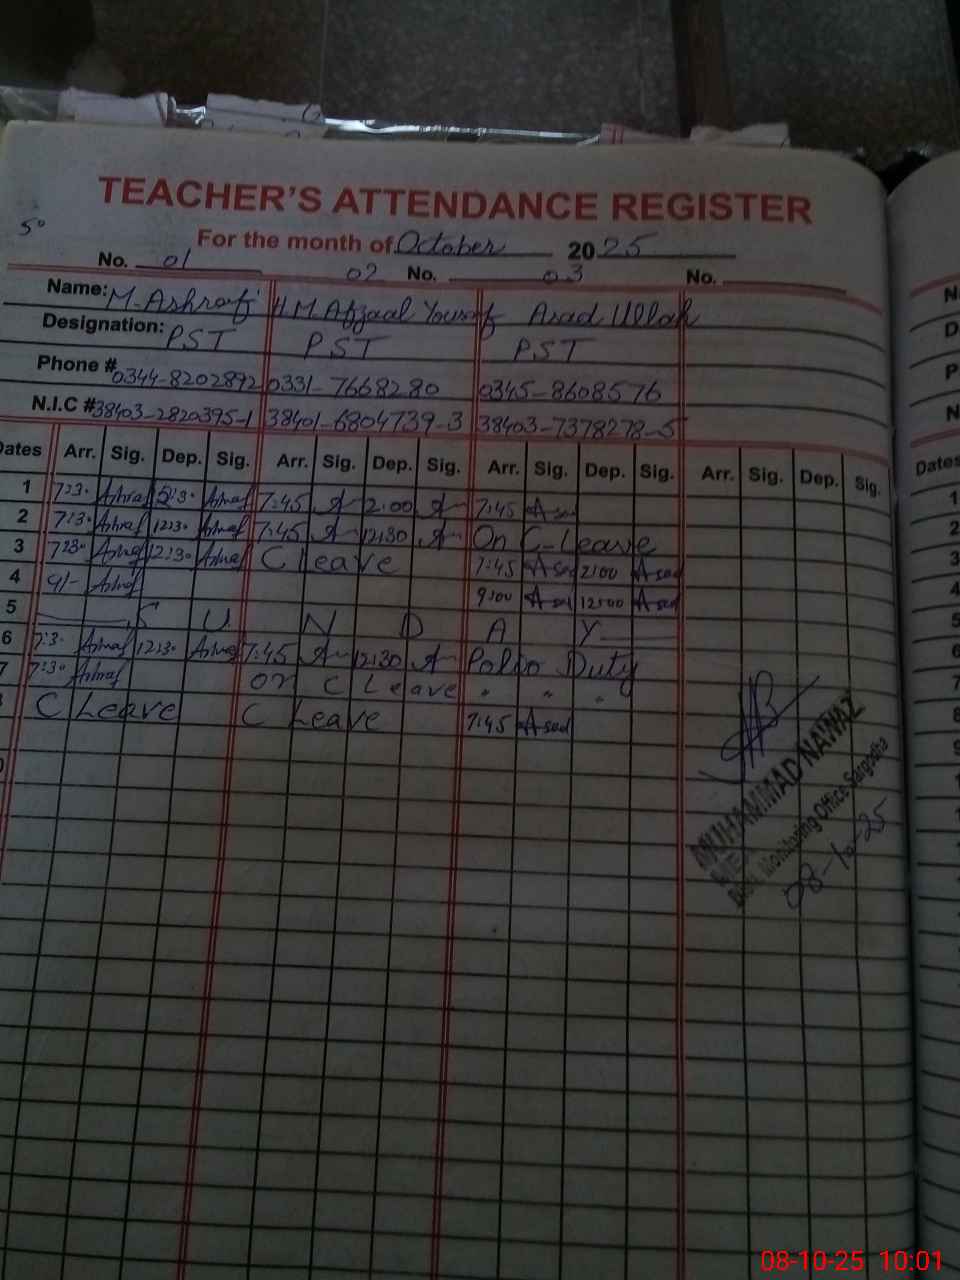 TEACHER'S ATTENDANCE REGISTER
5°
For the month of October 2025
No. 01 02 No. 03 No.
Name: M. Ashraf H.M Afzaal Yousaf Asad Ullah
Designation: PST PST PST
Phone # 0344-8202892 0331-7668280 0345-8608576
N.I.C # 38403-2820395-1 38401-6804739-3 38403-7378278-5
Dates Arr. Sig. Dep. Sig. Arr. Sig. Dep. Sig. Arr. Sig. Dep. Sig. Arr. Sig. Dep. Sig.
1 7:30 Ashraf Ashraf 7:45 2:00 7:45 Asad
2 7:30 Ashraf 12:30 Ashraf 7:45 12:30 On C-Leave
3 7:30 Ashraf 12:30 Ashraf C Leave 7:45 Asad 2:00 Asad
4 9/- Ashraf 9:00 Asad 12:00 Asad
5 S U N D A Y
6 7:30 Ashraf 12:30 Ashraf 7:45 12:30 Polio Duty
7 7:30 Ashraf on C Leave " " "
C Leave C Leave 7:45 Asad
MUHAMMAD NAWAZ
MEA
Monitoring Office Sargodha
08-10-25
Dates
1
2
3
4
5
6
7
8
9
08-10-25 10:01